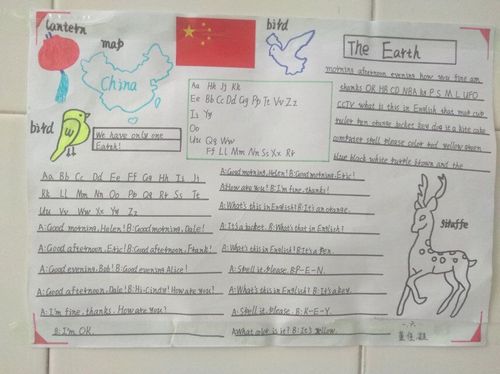 Lantern
map
bird
The Earth
China
bird
We have only one
Earth!
Aa Hh Jj Kk
Ee Bb Cc Dd Gg Pp Tt Vv Zz
Ii Yy
Oo
Uu Qq Ww
Ff Ll Mm Nn Ss Xx Rr
morning afternoon evening how you fine am
thanks OK HB CD NBA kg P S M L UFO
CCTV what is this in English that map cup
ruler pen orange jacket key dog is a kite cake
computer spell please color red yellow green
blue black white purple brown and the
Aa Bb Cc Dd Ee Ff Gg Hh Ii Jj
Kk Ll Mm Nn Oo Pp Qq Rr Ss Tt
Uu Vv Ww Xx Yy Zz
A:Good morning, Helen! B:Good morning, Dale!
A:Good afternoon, Eric! B:Good afternoon, Frank!
A:Good evening, Bob! B:Good evening Alice!
A:Good afternoon, Dale! B:Hi, Cindy! How are you?
A:I'm fine, thanks. How are you?
B:I'm OK.
A:Good morning, Helen! B:Good morning, Eric!
A:How are you! B:I'm fine, thanks!
A:What's this in English? B:It's an orange.
A:It's a jacket. B:What's that in English?
A:What's this in English! B:It's a Pen.
A:Spell it, Please. B:P-E-N.
A:What's this in English? B:It's a key.
A:Spell it, Please. B:K-E-Y.
A:What color is it? B:It's yellow.
giraffe